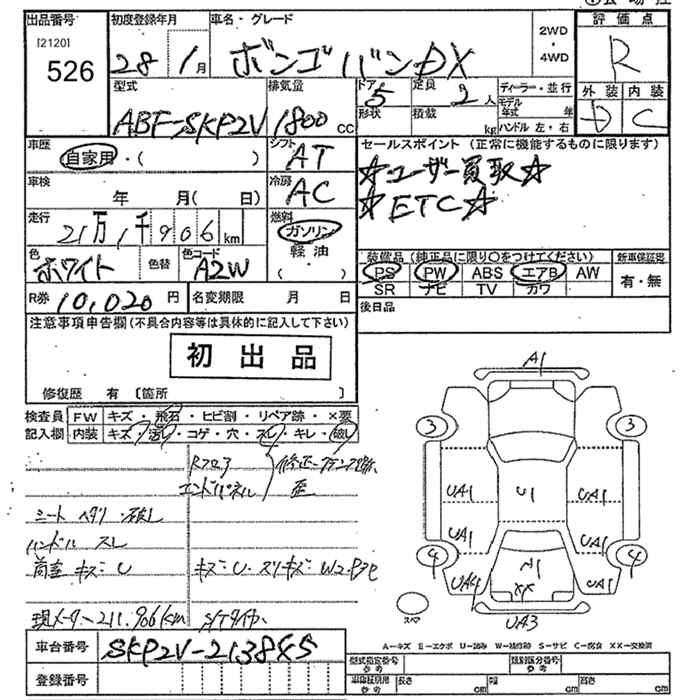 出品番号 初度登録年月 車名・グレード 2WD・4WD 評価点
[2120]
526 28 1月 ボンゴバン DX R
型式 排気量 ドア 5 定員 2人 ディーラー・並行 外装 内装
ABF-SKP2V 1800cc 形状 積載 kg モデル年式 年 ハンドル 左・右 D C
車歴 シフト セールスポイント (正常に機能するものに限ります)
自家用・( ) AT ☆ユーザー買取☆
車検 冷房 ☆ETC☆
年 月( 日) AC
走行 燃料
21万1千906km ガソリン
色 色替 色コード 軽油・( ) 装備品 (純正品に限り○をつけてください) 新車保証書
ホワイト A2W PS PW ABS エアB AW 有・無
SR ナビ TV カワ
R券 10,020円 名変期限 月 日 後日品
注意事項申告欄(不具合内容等は具体的に記入して下さい)
初出品
修復歴 有 〔箇所 〕
検査員 FW キズ・飛石・ヒビ割・リペア跡・×要
記入欄 内装 キズ・汚れ・コゲ・穴・スレ・キレ・破れ
Rフロア 修正
エンドパネル 歪
シート ヘタリ・破れ
ハンドル スレ
荷室 キズ:U キズ:U・スリキズ:W2
現メーター211,906km S/Tタイヤ
車台番号 SKP2V-213845
登録番号
A1
3 3
UA1 U1 UA1
UA1 UA1
4 A1 4
UA4 XX UA1
スペア UA3
A=キズ E=エクボ U=凹み W=補修跡 S=サビ C=腐食 XX=交換済
型式指定番号 参考 類別区分番号 参考
車庫証明用 参考 長さ cm 幅 cm 高さ cm